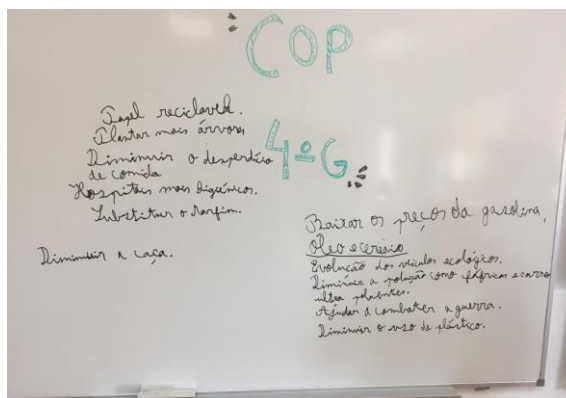 COP
4ºG
Papel reciclavel.
Plantar mais árvores
Diminuir o desperdício
de comida
Hospitais mais higiénicos.
Substituir o Marfim.
Diminuir a caça.
Baixar os preços da gasolina,
Óleo e cereais
Evolução dos veículos ecológicos.
Diminuir a poluição como fábricas e carros
ultra poluentes.
Ajudar a combater a guerra.
Diminuir o uso de plástico.